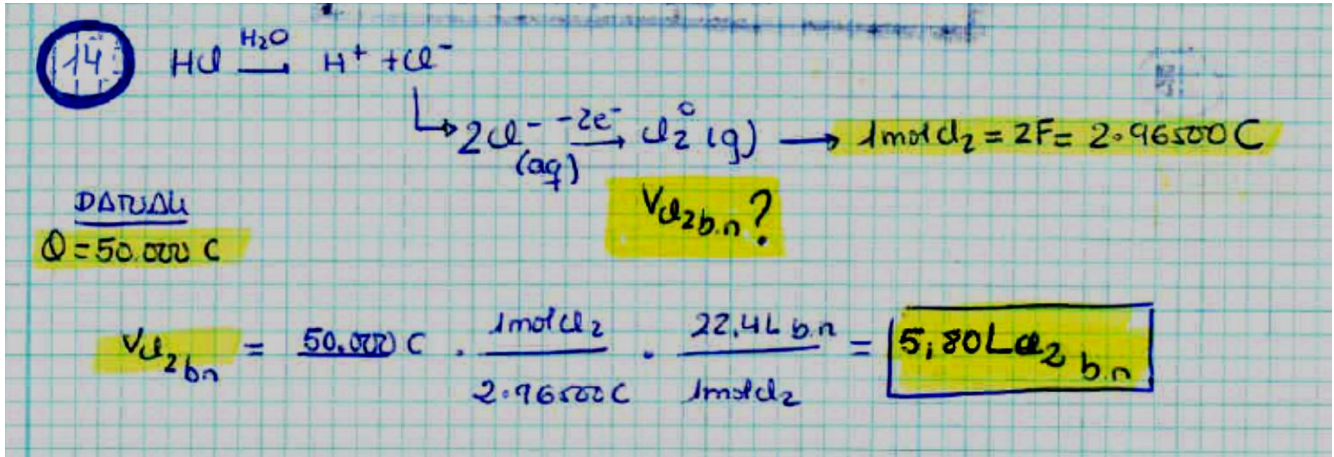 14 HCl H₂O → H⁺ + Cl⁻
2Cl⁻ (aq) -2e⁻ → Cl₂⁰ (g) → 1mol Cl₂ = 2F = 2·96500 C
V Cl₂ b.n?
Q = 50.000 C
V Cl₂ bn = 50.000 C · 1mol Cl₂ / 2·96500 C · 22,4 L b.n / 1mol Cl₂ = 5,80 L Cl₂ b.n